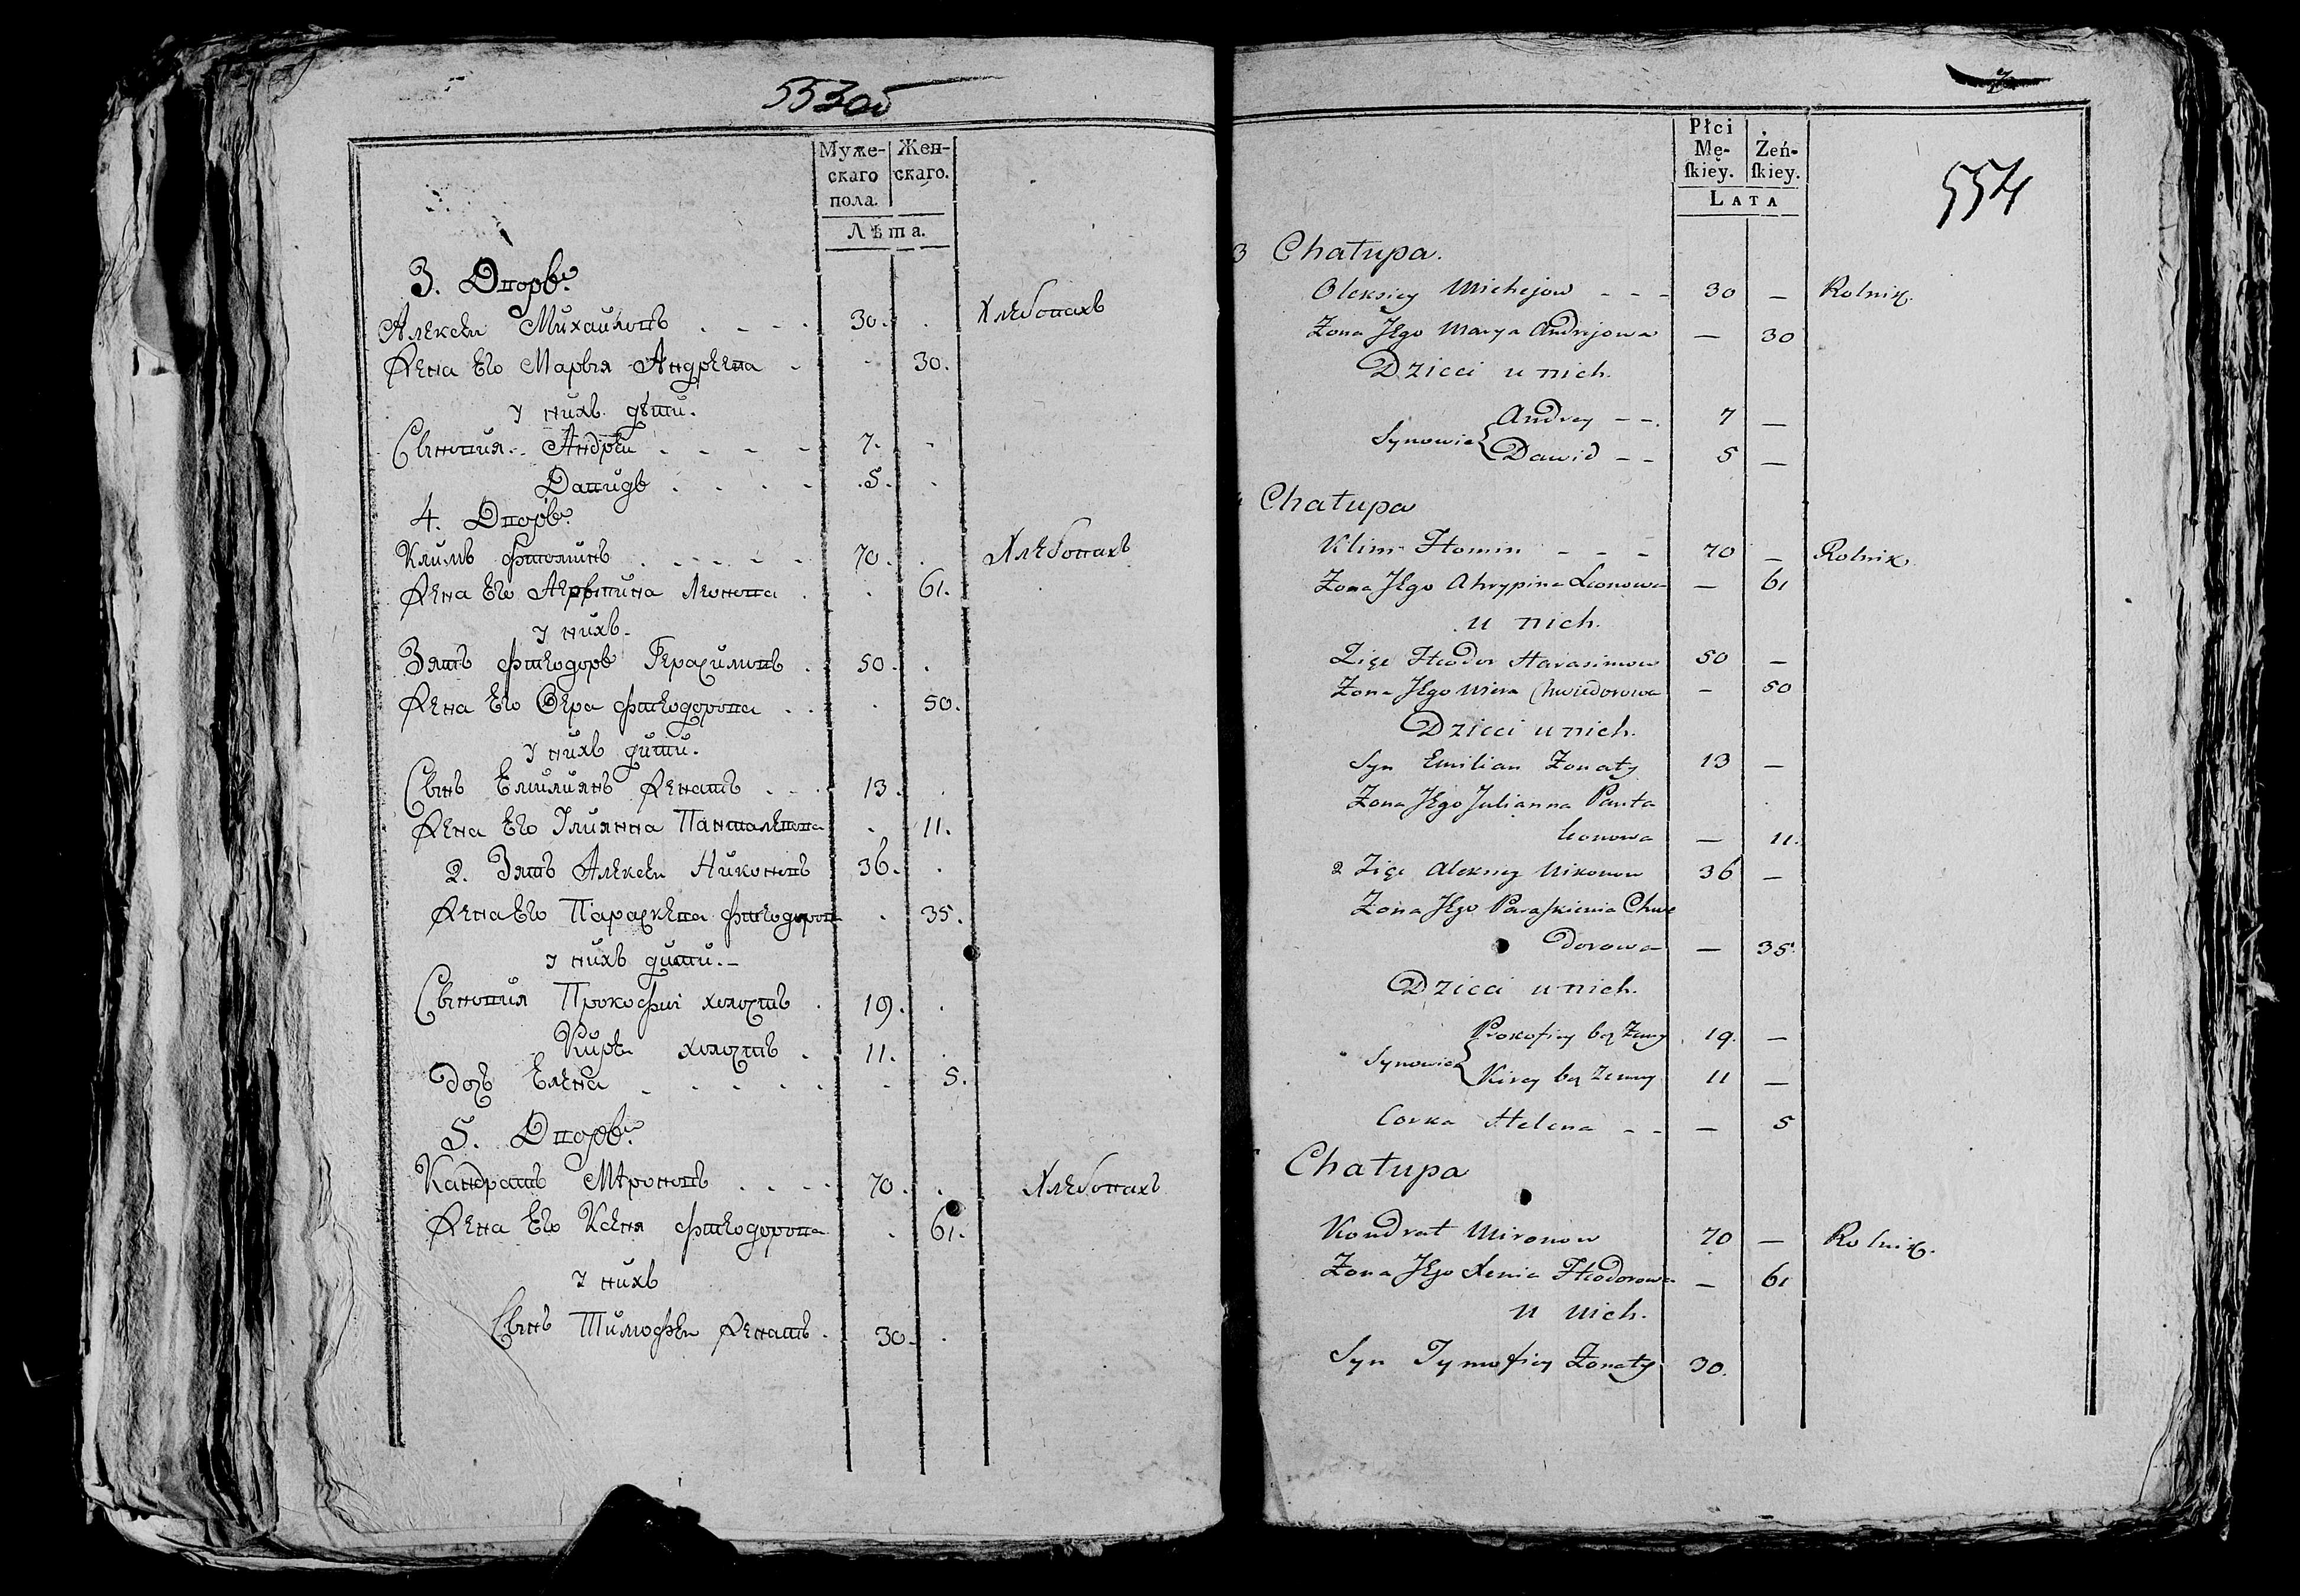 553об
Муже-
скаго
пола.
Жен-
скаго.
Лѣта.
3. Дворъ.
Алексеи Михаиловъ . . . . 30. . Хлебопахъ
Жена Его Марья Андреева . . 30.
У нихъ дѣти.
Сыновия.. Андреи . . . . 7. .
Давидъ . . . . 5. .
4. Дворъ.
Климъ Фтоминъ . . . . . 70. . Хлебопахъ
Жена Его Агрыпина Леонова . . 61.
У нихъ.
Зять Фтеодоръ Герасимовъ . 50. .
Жена Его Вера Фтеодорова . . . 50.
У нихъ дити.
Сынъ Емилиянъ Женатъ . . . 13. .
Жена Его Улиянна Панталевова . 11.
2. Зять Алексеи Никоновъ 36. .
Жена Его Параскева Фтеодоров . 35.
У нихъ дити.-
Сыновия Прокофиі холостъ . 19. .
Киреи холостъ . 11. .
Доч Елена . . . . . . 5.
5. Дворъ.
Кандратъ Мѣроновъ . . . . 70. . Хлебопахъ
Жена Его Ксеня Фтеодорова . 61.
У нихъ
Сынъ Тимофеи Женатъ . 30. .
2
554
Płci
Mę-
ſkiey.
Żeń-
ſkiey.
LATA
3 Chałupa.
Oleksiey Michejow - - - 30 — Rolnik.
Zona Jego Marya Andrejowa — 30
Dzieci u nich.
Synowie { Andrey - - . 7 —
Dawid - - 5 —
4 Chałupa
Klim Ftomin - - - 70 — Rolnik
Zona Jego Ahrypina Leonowa — 61
u nich.
Zięć Fteodor Harasimow 50 —
Zona Jego Wiera Chwiedorowa — 50
Dzieci u nich.
Syn Emilian Zonaty 13 —
Zona Jego Julianna Panta
leonowa — 11.
2 Zięć Aleksiey Nikonow 36 —
Zona Jego Paraſkiewia Chwe
dorowa — 35.
Dzieci u nich.
Synowie { Prokofiey bez Zenny 19. —
Kirey bez Zenny 11 —
Corka Helena - - — 5
Chałupa
Kondrat Mironow 70 — Rolnik.
Zona Jego Xenia Fteodorowa — 61
u nich.
Syn Tymofiey Zonaty 30.